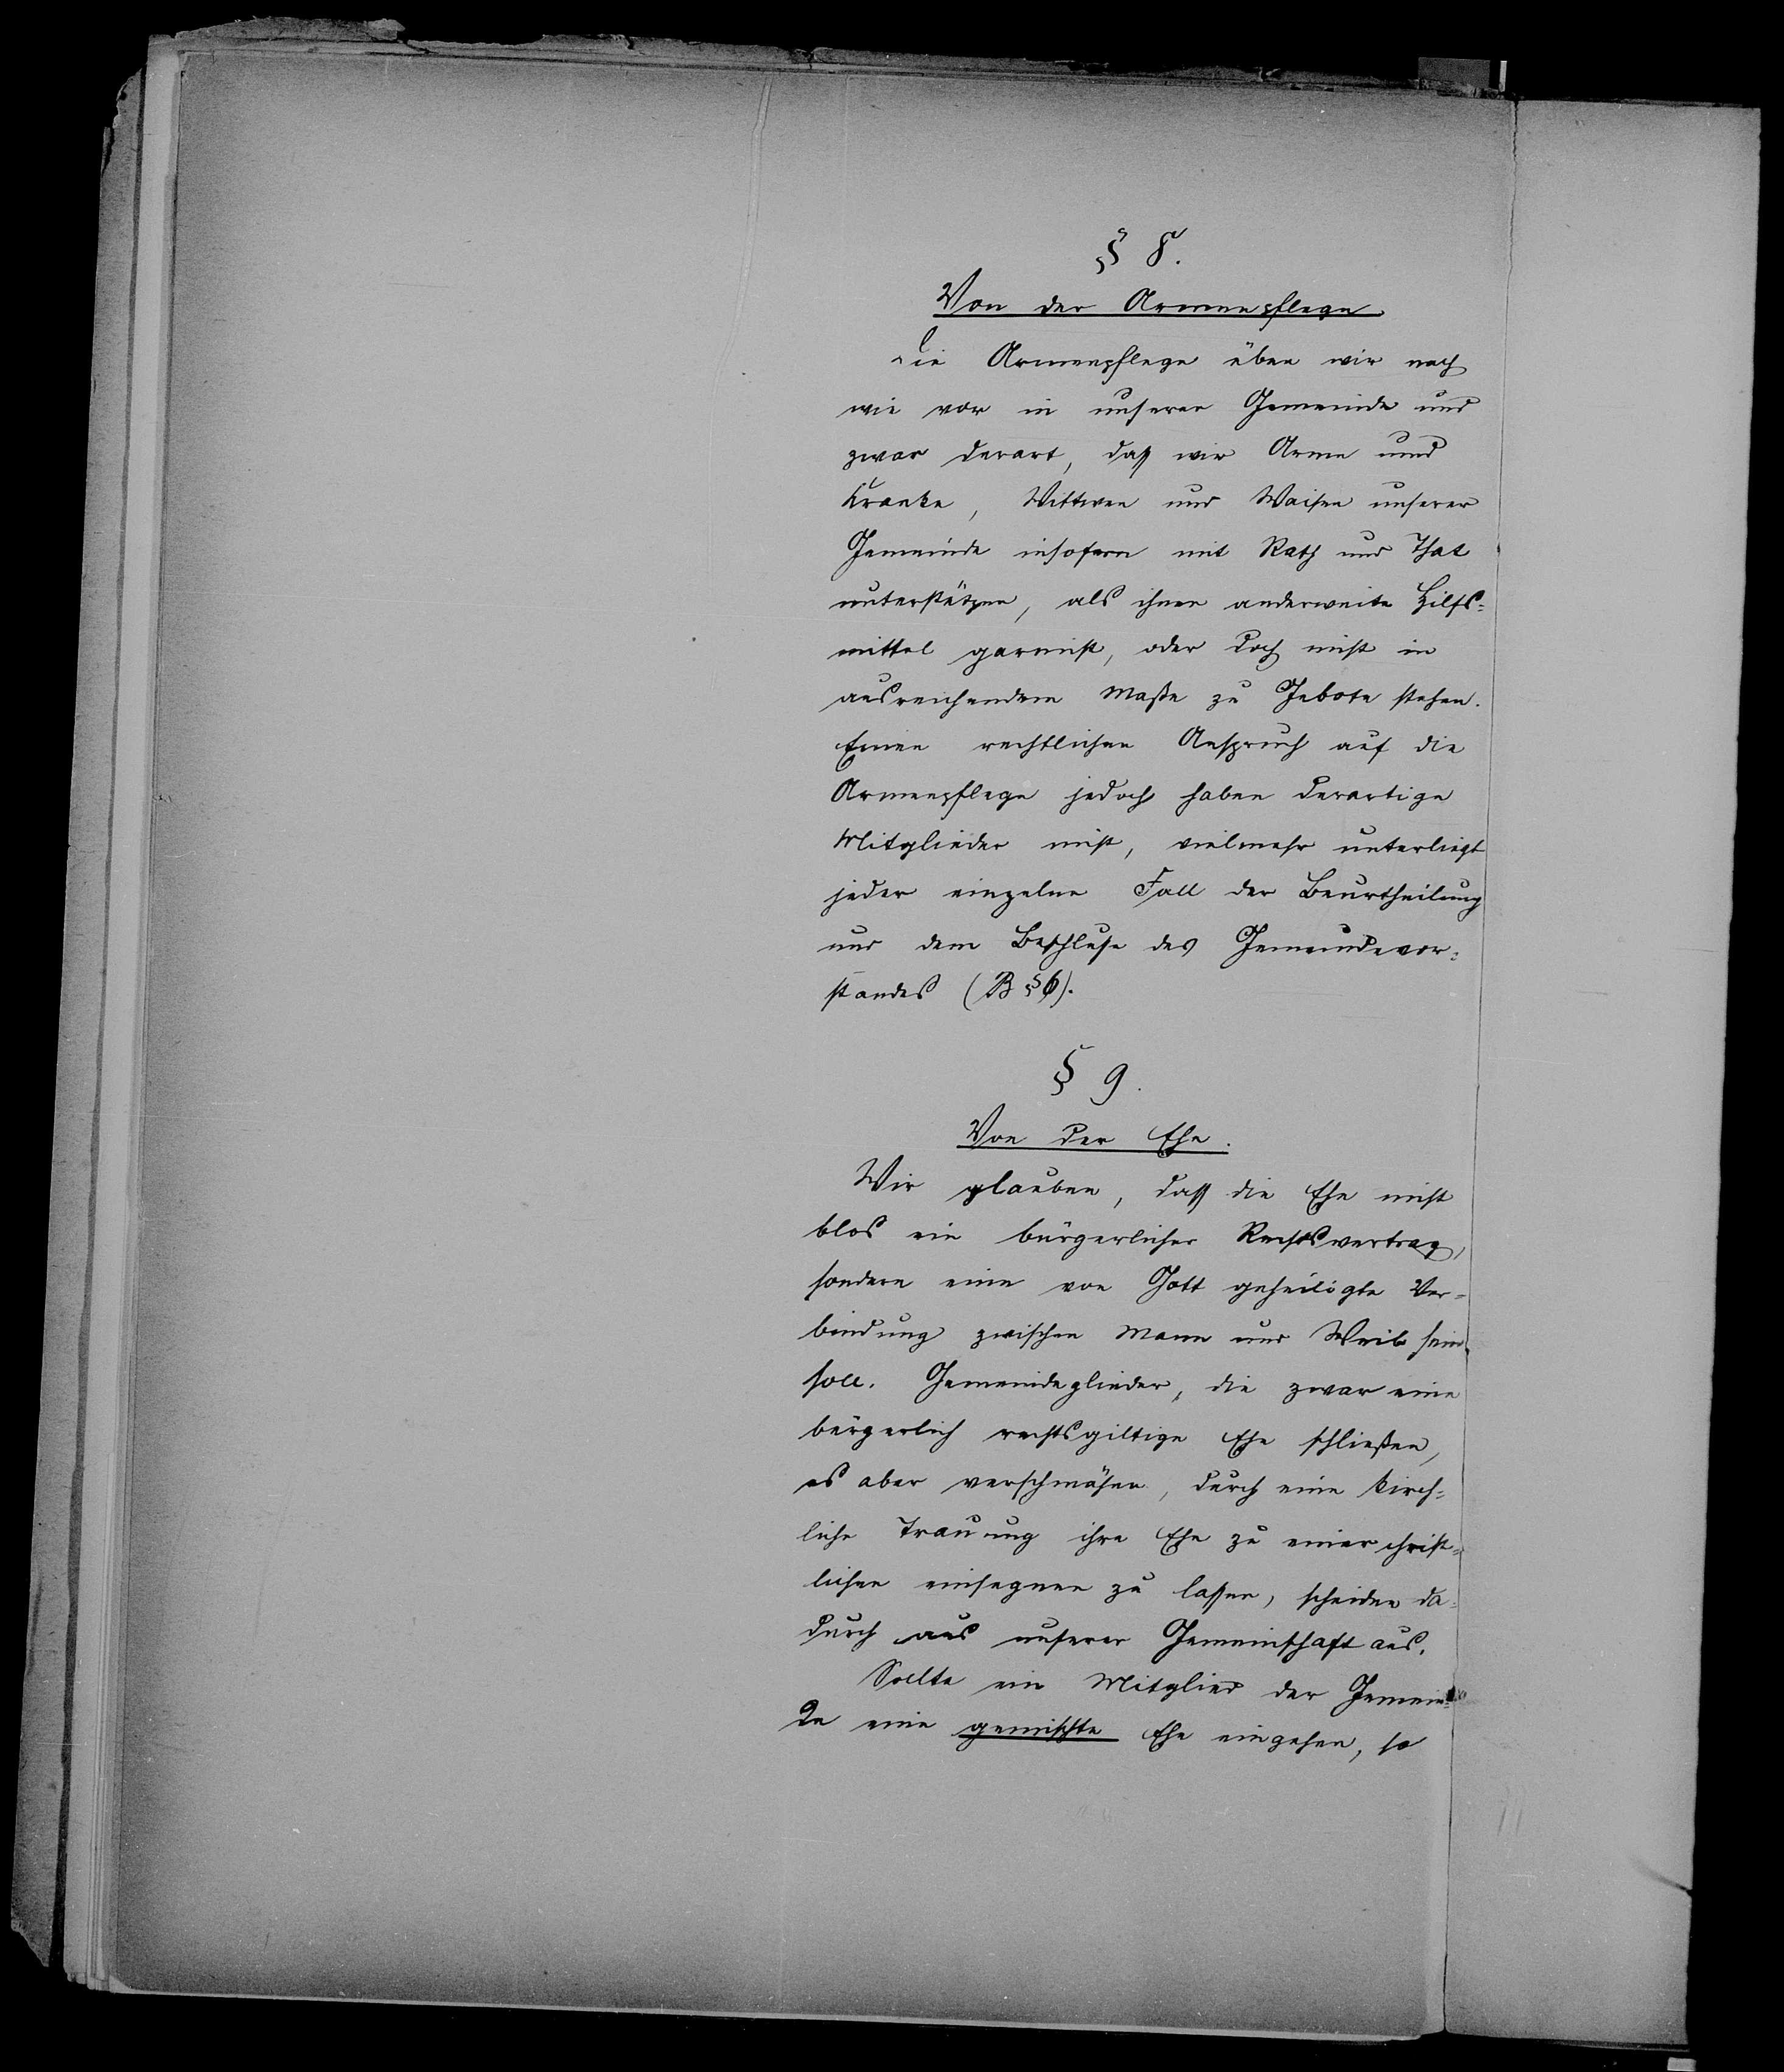 § 8.
Von der Armenpflege.
Die Armenpflege üben wir nach
wie vor in unserer Gemeinde und
zwar derart, daß wir Arme und
Kranke, Wittwen und Waisen unserer
Gemeinde insofern mit Rath und That
unterstützen, als ihnen anderweite Hilfs=
mittel garnicht, oder doch nicht in
ausreichendem Maße zu Gebote stehen.
Einen rechtlichen Anspruch auf die
Armenpflege jedoch haben derartige
Mitglieder nicht, vielmehr unterliegt
jeder einzelne Fall der Beurtheilung
und dem Beschluse des Gemeindevor=
standes (B §6).
§ 9.
Von der Ehe.
Wir glauben, daß die Ehe nicht
blos ein bürgerlicher Rechtsvertrag,
sondern eine von Gott geheiligte Ver=
bindung zwischen Mann und Weib sein
soll. Gemeindeglieder, die zwar eine
bürgerlich rechtsgiltige Ehe schließen,
es aber verschmähen, durch eine kirch=
liche Trauung ihre Ehe zu einer christ=
lichen einsegnen zu lassen, scheiden da=
durch aus unserer Gemeinschaft aus.
Sollte ein Mitglied der Gemein=
de eine gemischte Ehe eingehen, so